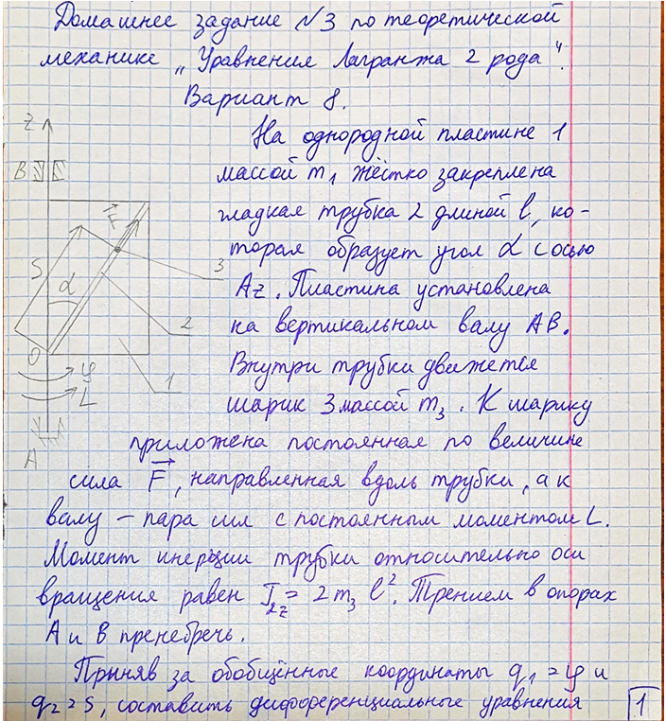 Домашнее задание №3 по теоретической
механике „Уравнения Лагранжа 2 рода“.
Вариант 8.
На однородной пластине 1
массой m₁ жёстко закреплена
гладкая трубка 2 длиной l, ко-
торая образует угол α с осью
Az. Пластина установлена
на вертикальном валу AB.
Внутри трубки движется
шарик 3 массой m₃. К шарику
приложена постоянная по величине
сила F⃗, направленная вдоль трубки, а к
валу – пара сил с постоянным моментом L.
Момент инерции трубки относительно оси
вращения равен I₂z = 2m₃l². Трением в опорах
A и B пренебречь.
Приняв за обобщённые координаты q₁=φ и
q₂=S, составить дифференциальные уравнения
z
B
F⃗
S
α
3
2
O
φ
1
L
A
1